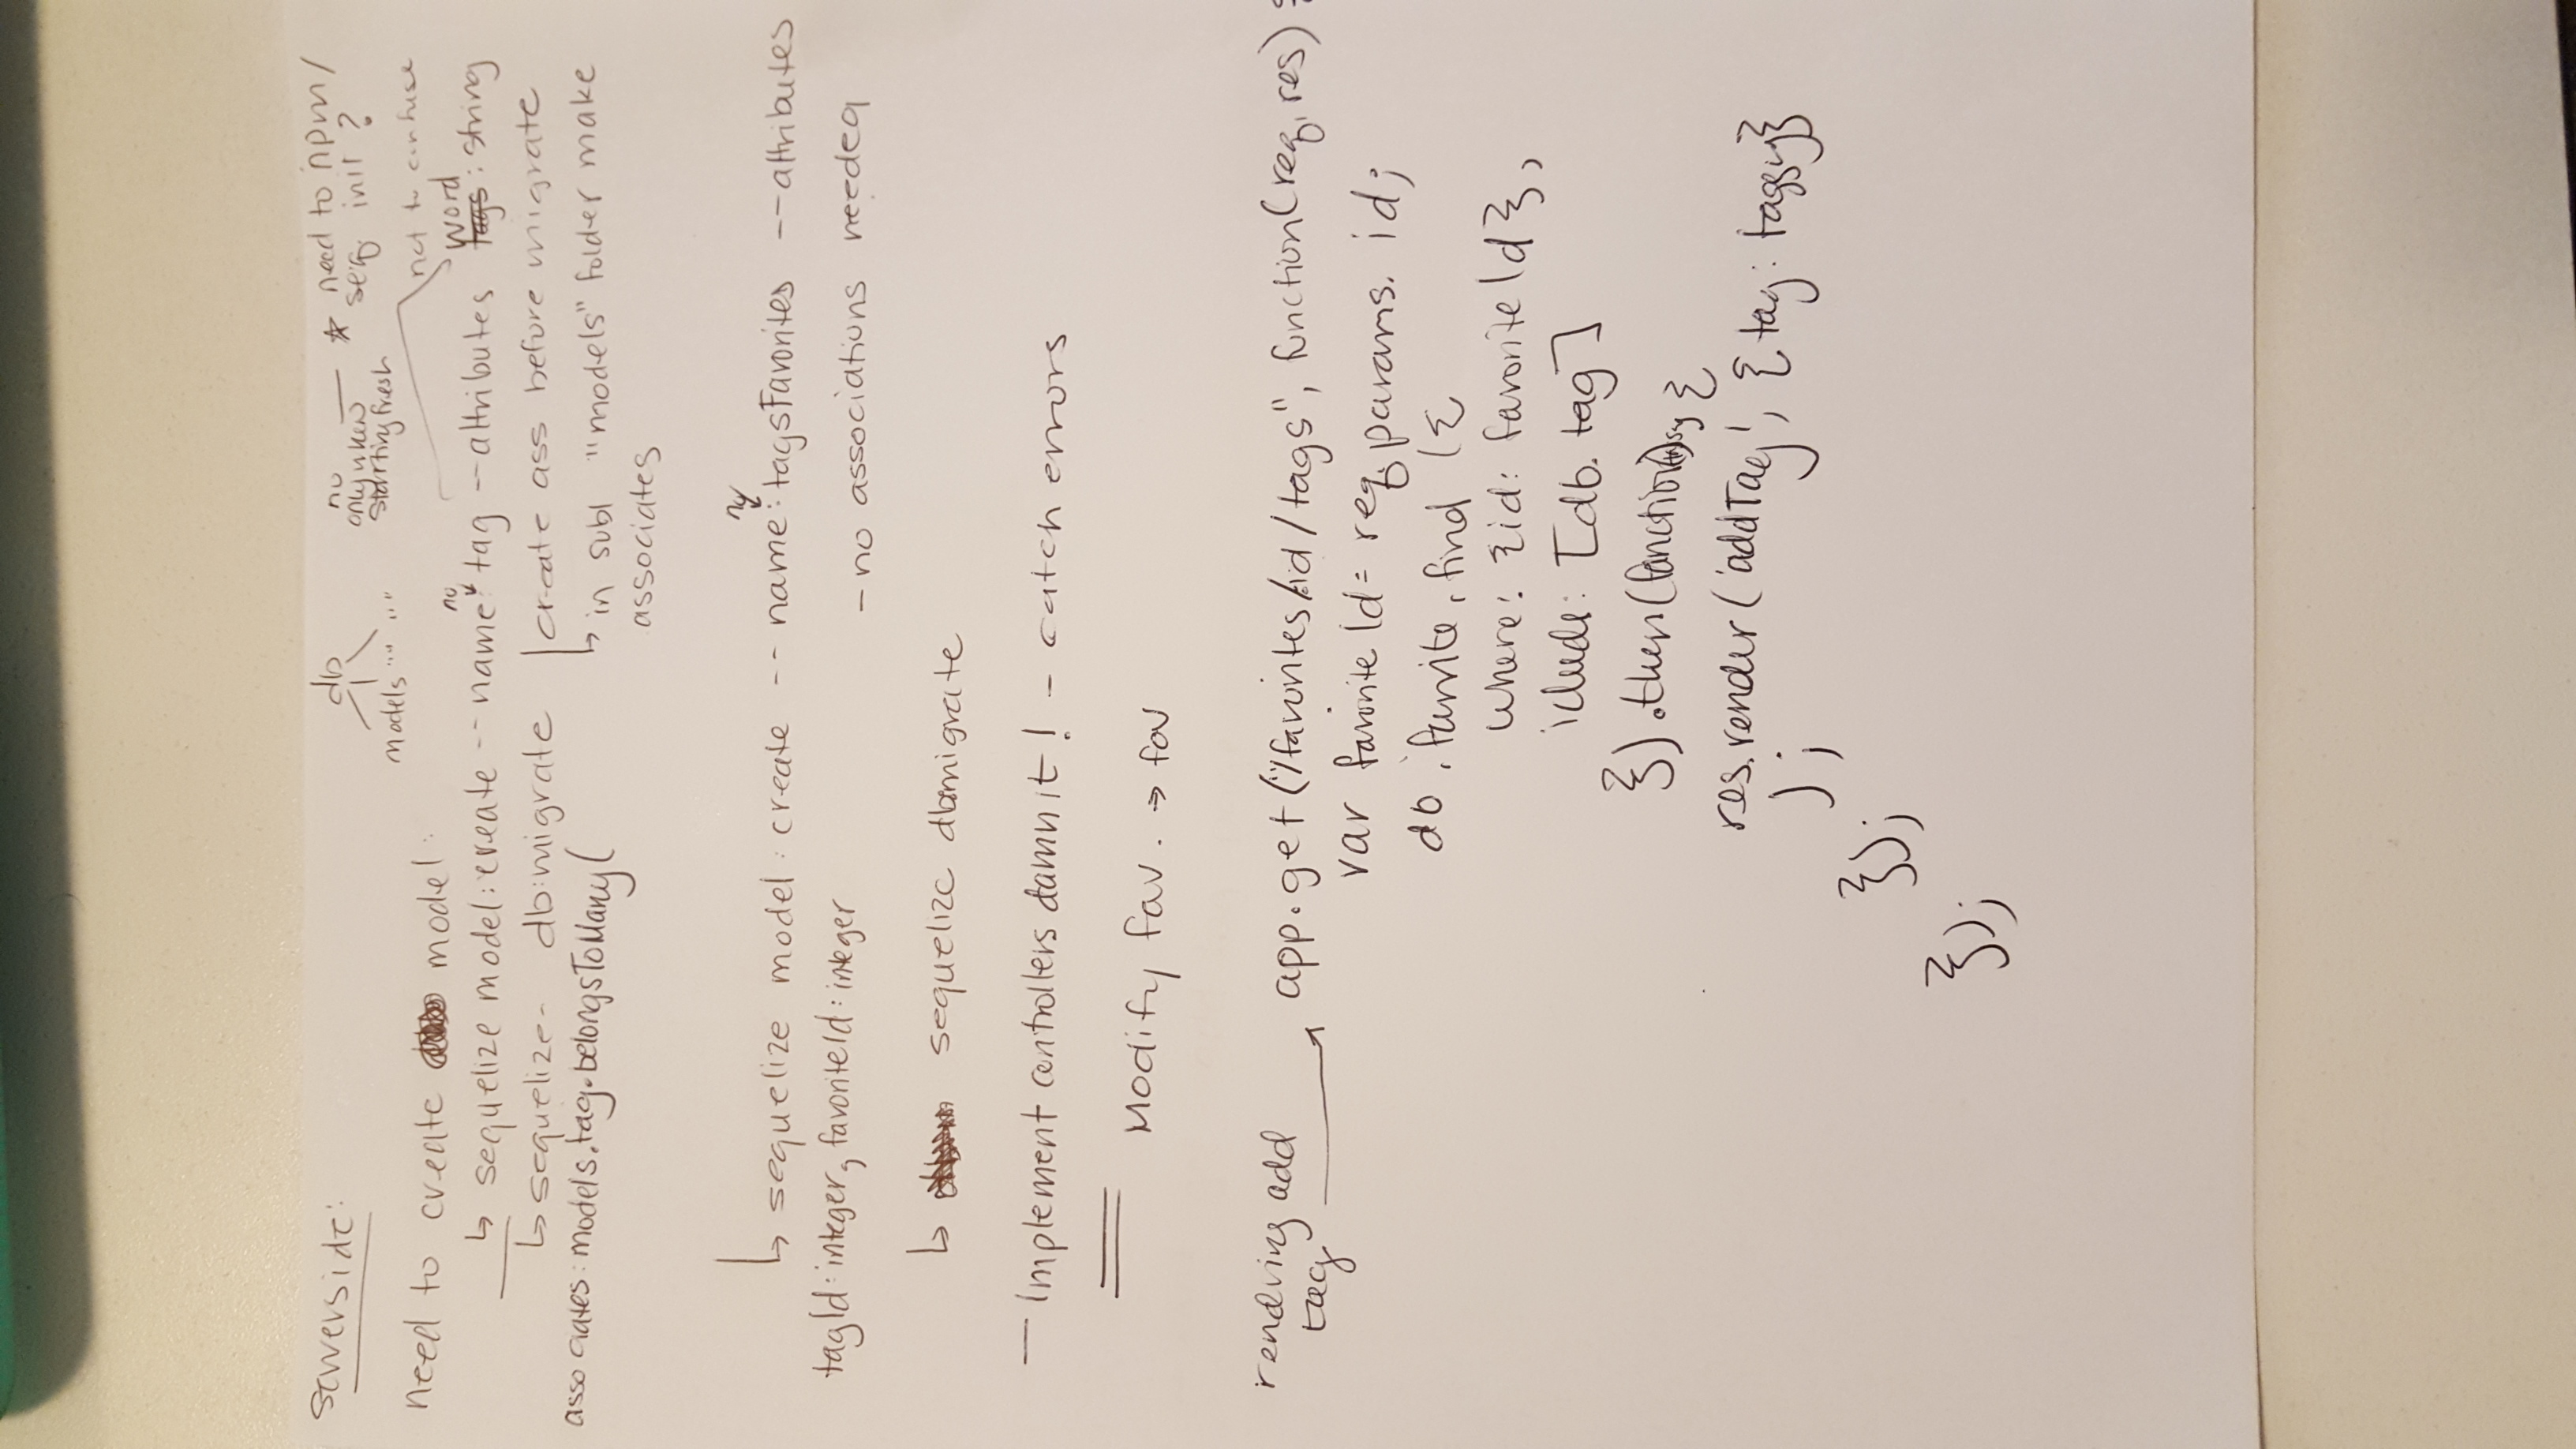 serverside:
db
models "" ""
no
only when
starting fresh
* need to npm/
seq. init ?
need to create model:
not to confuse
no
word
↳ sequelize model:create --name: tag --attributes tags: string
↳ sequelize- db:migrate
create ass before migrate
associates: models.tag.belongsToMany(
↳ in subl "models" folder make
associates
no
↳ sequelize model: create -- name: tagsFavorites --attributes
tagId: integer, favoriteId: integer
- no associations needed
↳ sequelize db:migrate
— Implement controllers damn it! - catch errors
Modify fav. → fav
rendring add
tag
app.get("/favorites/:id/tags", function(req, res) {
var favoriteId = req.params.id;
db.favorite.find ({
where: {id: favoriteId},
iclude: [db.tag]
}).then(function {
res.render('addTag', {tag: taggy}
);
});
});